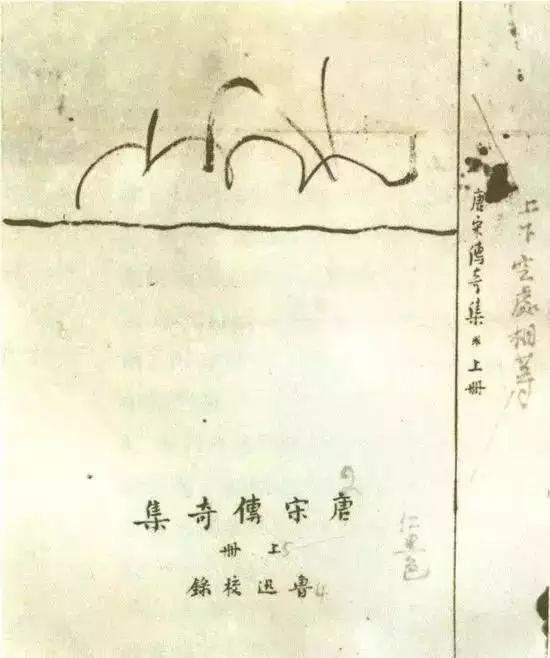 上下空處相等
唐宋傳奇集*上冊
2
唐宋傳奇集
上冊 5
魯迅校錄 4
色